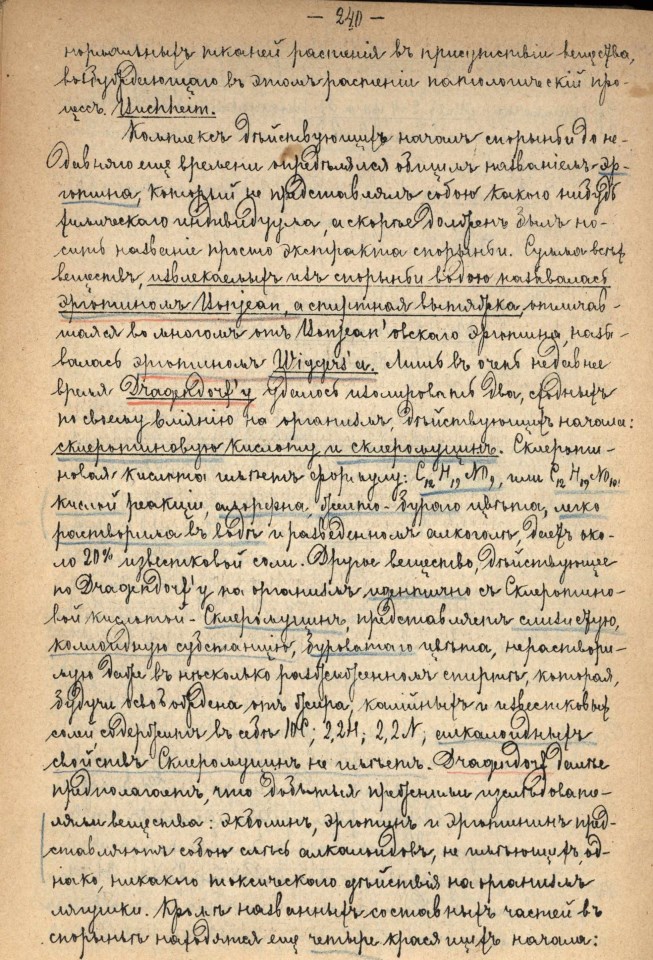 — 240 —
нормальныхъ тканей растенія въ присутствіи вещества,
возбуждающаго въ этомъ растеніи патологическій про-
цессъ. Buchheim.
Комплексъ дѣйствующихъ началъ спорыньи до не-
давняго еще времени опредѣлялся общимъ названіемъ эр-
готина, который не представлялъ собою какого нибудь
химическаго индивидуума, а скорѣе долженъ былъ но-
сить названіе просто экстракта спорыньи. Сумма всѣхъ
веществъ, извлекаемыхъ изъ спорыньи водою называлась
эрготиномъ Bonjean, а спиртная вытяжка, отличав-
шаяся во многомъ отъ Bonjean'овскаго эрготина, назы-
валась эрготиномъ Wiggers'а. Лишь въ очень недавнее
время Dragendorf'у удалось изолировать два, сходныхъ
по своему вліянію на организмъ, дѣйствующихъ начала:
склеротиновую кислоту и склеромуцинъ. Склероти-
новая кислота имѣетъ формулу: C12 H19 NO9, или C12 H19 NO10,
кислой реакціи, аморфна, желто-бураго цвѣта, легко
растворима въ водѣ и разведенномъ алкоголѣ, даетъ око-
ло 20% известковой соли. Другое вещество, дѣйствующее
по Dragendorf'у на организмъ идентично съ Склеротино-
вой кислотой - Склеромуцинъ, представляетъ слизистую,
коллоидную субстанцію, буроватаго цвѣта, нераствори-
мую даже въ нѣсколько разбавленномъ спиртѣ, которая,
будучи освобождена отъ жира, калійныхъ и известковыхъ
солей содержитъ въ себѣ 10C; 2,2H; 2,2N; алкалоидныхъ
свойствъ Склеромуцинъ не имѣетъ. Dragendorf далѣе
предполагаетъ, что добытыя прежними изслѣдовате-
лями вещества: экболинъ, эрготинъ и эрготининъ пред-
ставляютъ собою смѣсь алкалоидовъ, не имѣющихъ, од-
нако, никакого токсическаго дѣйствія на организмъ
лягушки. Кромѣ названныхъ составныхъ частей въ
спорыньѣ находятся еще четыре красящихъ начала: